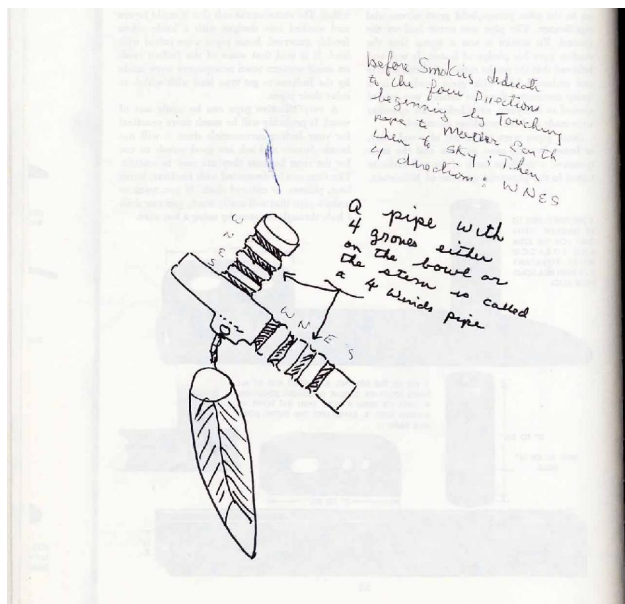 before Smoking dedicate
to the four Directions
beginning by Touching
pipe to Mother Earth
then to SKY; Then
4 directions: WNES
A pipe with
4 groves either
on the bowl or
the stem is called
a 4 Winds pipe
W
N
E
S
W N E S